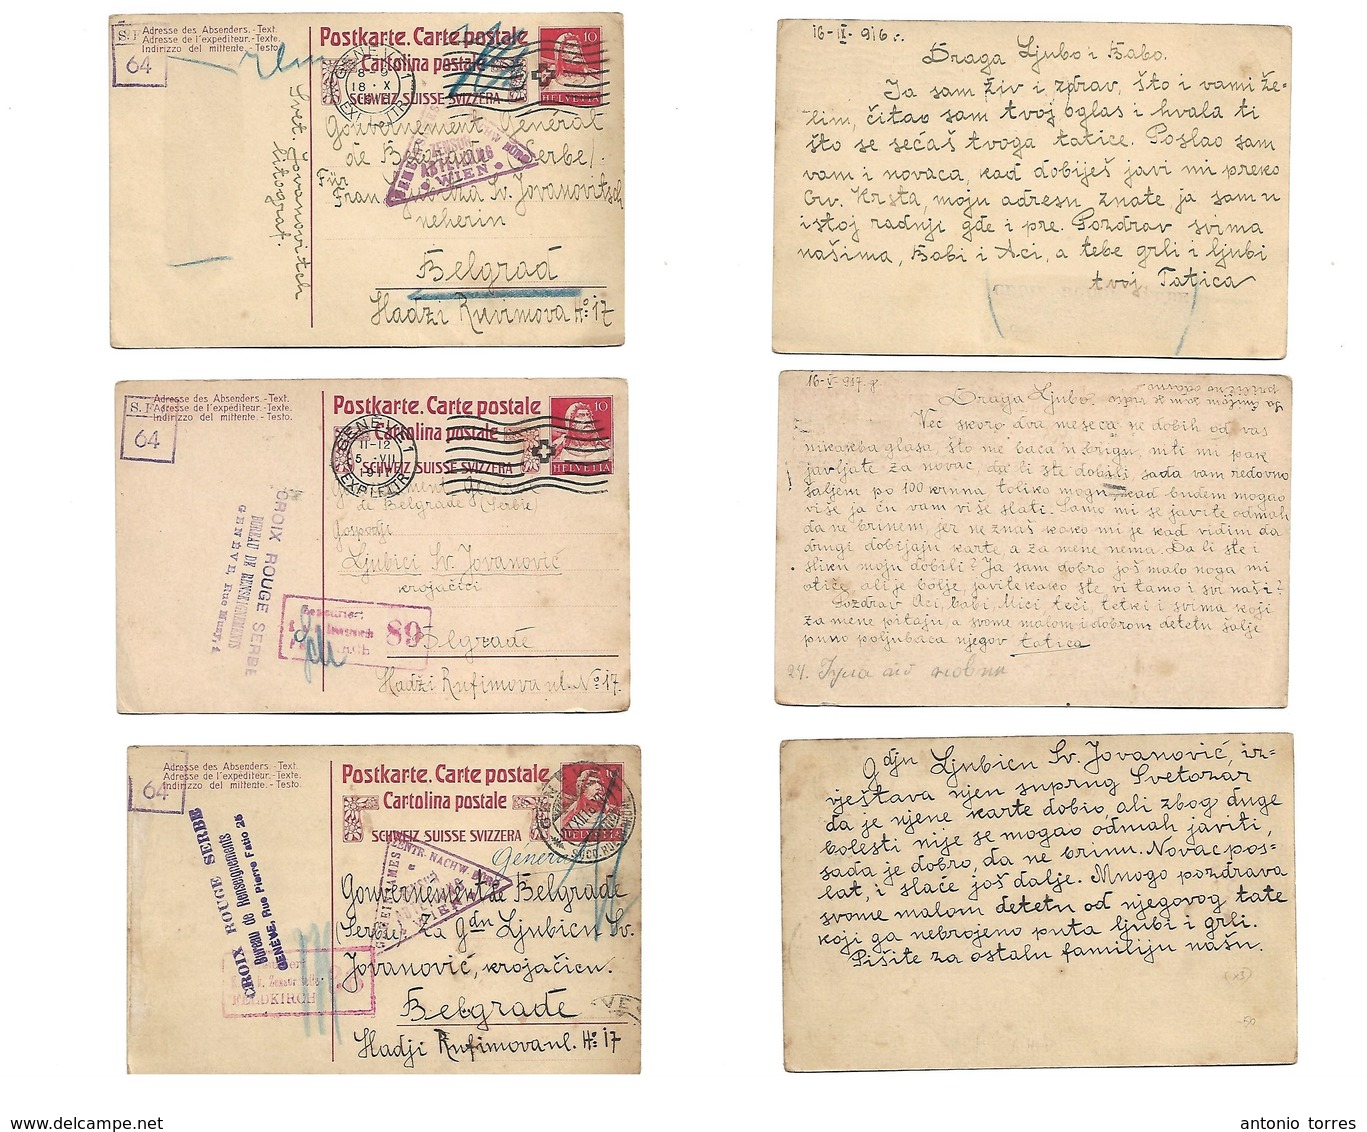 S.F.
64
Adresse des Absenders. -Text.
Adresse de l'expéditeur.-Texte.
Indirizzo del mittente. -Testo.
Postkarte. Carte postale
Cartolina postale
SCHWEIZ SUISSE SVIZZERA
10
HELVETIA
GENÈVE 1
18 X
EXP. LETTR.
ZENSUR
ABTEILUNG
WIEN
Gouvernement Général
de Belgrade (Serbe).
Für
Frau
Sv. Jovanovitsch
Belgrad
Hadži Ruvimova No 17
Svet. Jovanovitch
litograf.
16-IX-916.
Draga Ljubo i Babo.
Ja sam živ i zdrav, što i vami že-
lim, čitao sam tvoj oglas i hvala ti
što se sećaš tvoga tatice. Poslao sam
vam i novaca, kad dobiješ javi mi preko
Crv. Krsta, moju adresu znate ja sam u
istoj radnji gde i pre. Pozdrav svima
našima, Babi i Aci, a tebe grli i ljubi
tvoj Tatica
S.F.
64
Adresse des Absenders. -Text.
Adresse de l'expéditeur.-Texte.
Indirizzo del mittente. -Testo.
Postkarte. Carte postale
Cartolina postale
SCHWEIZ SUISSE SVIZZERA
10
HELVETIA
GENÈVE 1
11-12
5 VII
EXP. LETTR.
Gouvernement Général
de Belgrade (Serbie)
Gospodji
Ljubici Sv. Jovanović
krojačici
Belgrade
Hadži Rufimova ul. No 17.
CROIX ROUGE SERBE
BUREAU DE RENSEIGNEMENTS
GENÈVE, Rue Muzy, 1
Zensuriert
89
16-V-917. g
Draga Ljubo.
Već skoro dva meseca ne dobih od vas
nikakva glasa, što me baca u brigu, niti mi pak
javljate za novac, da li ste dobili, sada vam redovno
šaljem po 100 kruna toliko mogu, kad budem mogao
više ja ću vam više slati. Samo mi se javite odmah
da ne brinem, jer ne znaš kako mi je kad vidim da
drugi dobijaju karte a za mene nema. Da li ste i
sliku moju dobili? Ja sam dobro još malo noga mi
otiče, ali je bolje, javite kako ste vi tamo i svi naši?
Pozdrav Aci, babi, Mici, teči, tetki i svima koji
za mene pitaju a svome malom i dobrom detetu šalje
puno poljubaca njegov tatica
24.
64
Adresse des Absenders. -Text.
Adresse de l'expéditeur.-Texte.
Indirizzo del mittente. -Testo.
Postkarte. Carte postale
Cartolina postale
SCHWEIZ SUISSE SVIZZERA
HELVETIA
Général
Gouvernement de Belgrade
(Serbie) Za Gdju Ljubicu Sv.
Jovanović, krojačicu.
Belgrade
Hadji Rufimova ul. No 17
CROIX ROUGE SERBE
Bureau de Renseignements
GENÈVE, Rue Pierre Fatio 25
ZENTR. NACHW. BÜRO
WIEN
FELDKIRCH
Gdju Ljubicu Sv. Jovanović, iz-
vještava njen suprug Svetozar
da je njene karte dobio, ali zbog duge
bolesti nije se mogao odmah javiti,
sada je dobro, da ne brinu. Novac pos-
lat, i slaće još dalje. Mnogo pozdrava
svome malom detetu od njegovog tate
koji ga nebrojeno puta ljubi i grli.
Pišite za ostalu familiju našu.
(x3)
50
antonio torres